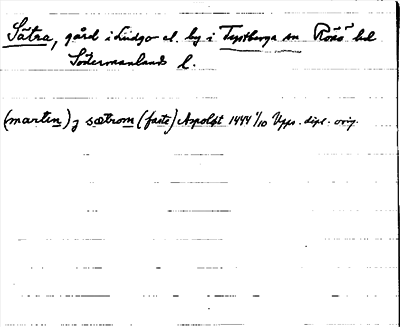 Sätra, gård i Lindgo el. by i Tystberga sn Rönö hd
Södermanlands l.
(marten) j sætrom (faste) Arpoldst 1444 1/10 Upps. dipl. orig.